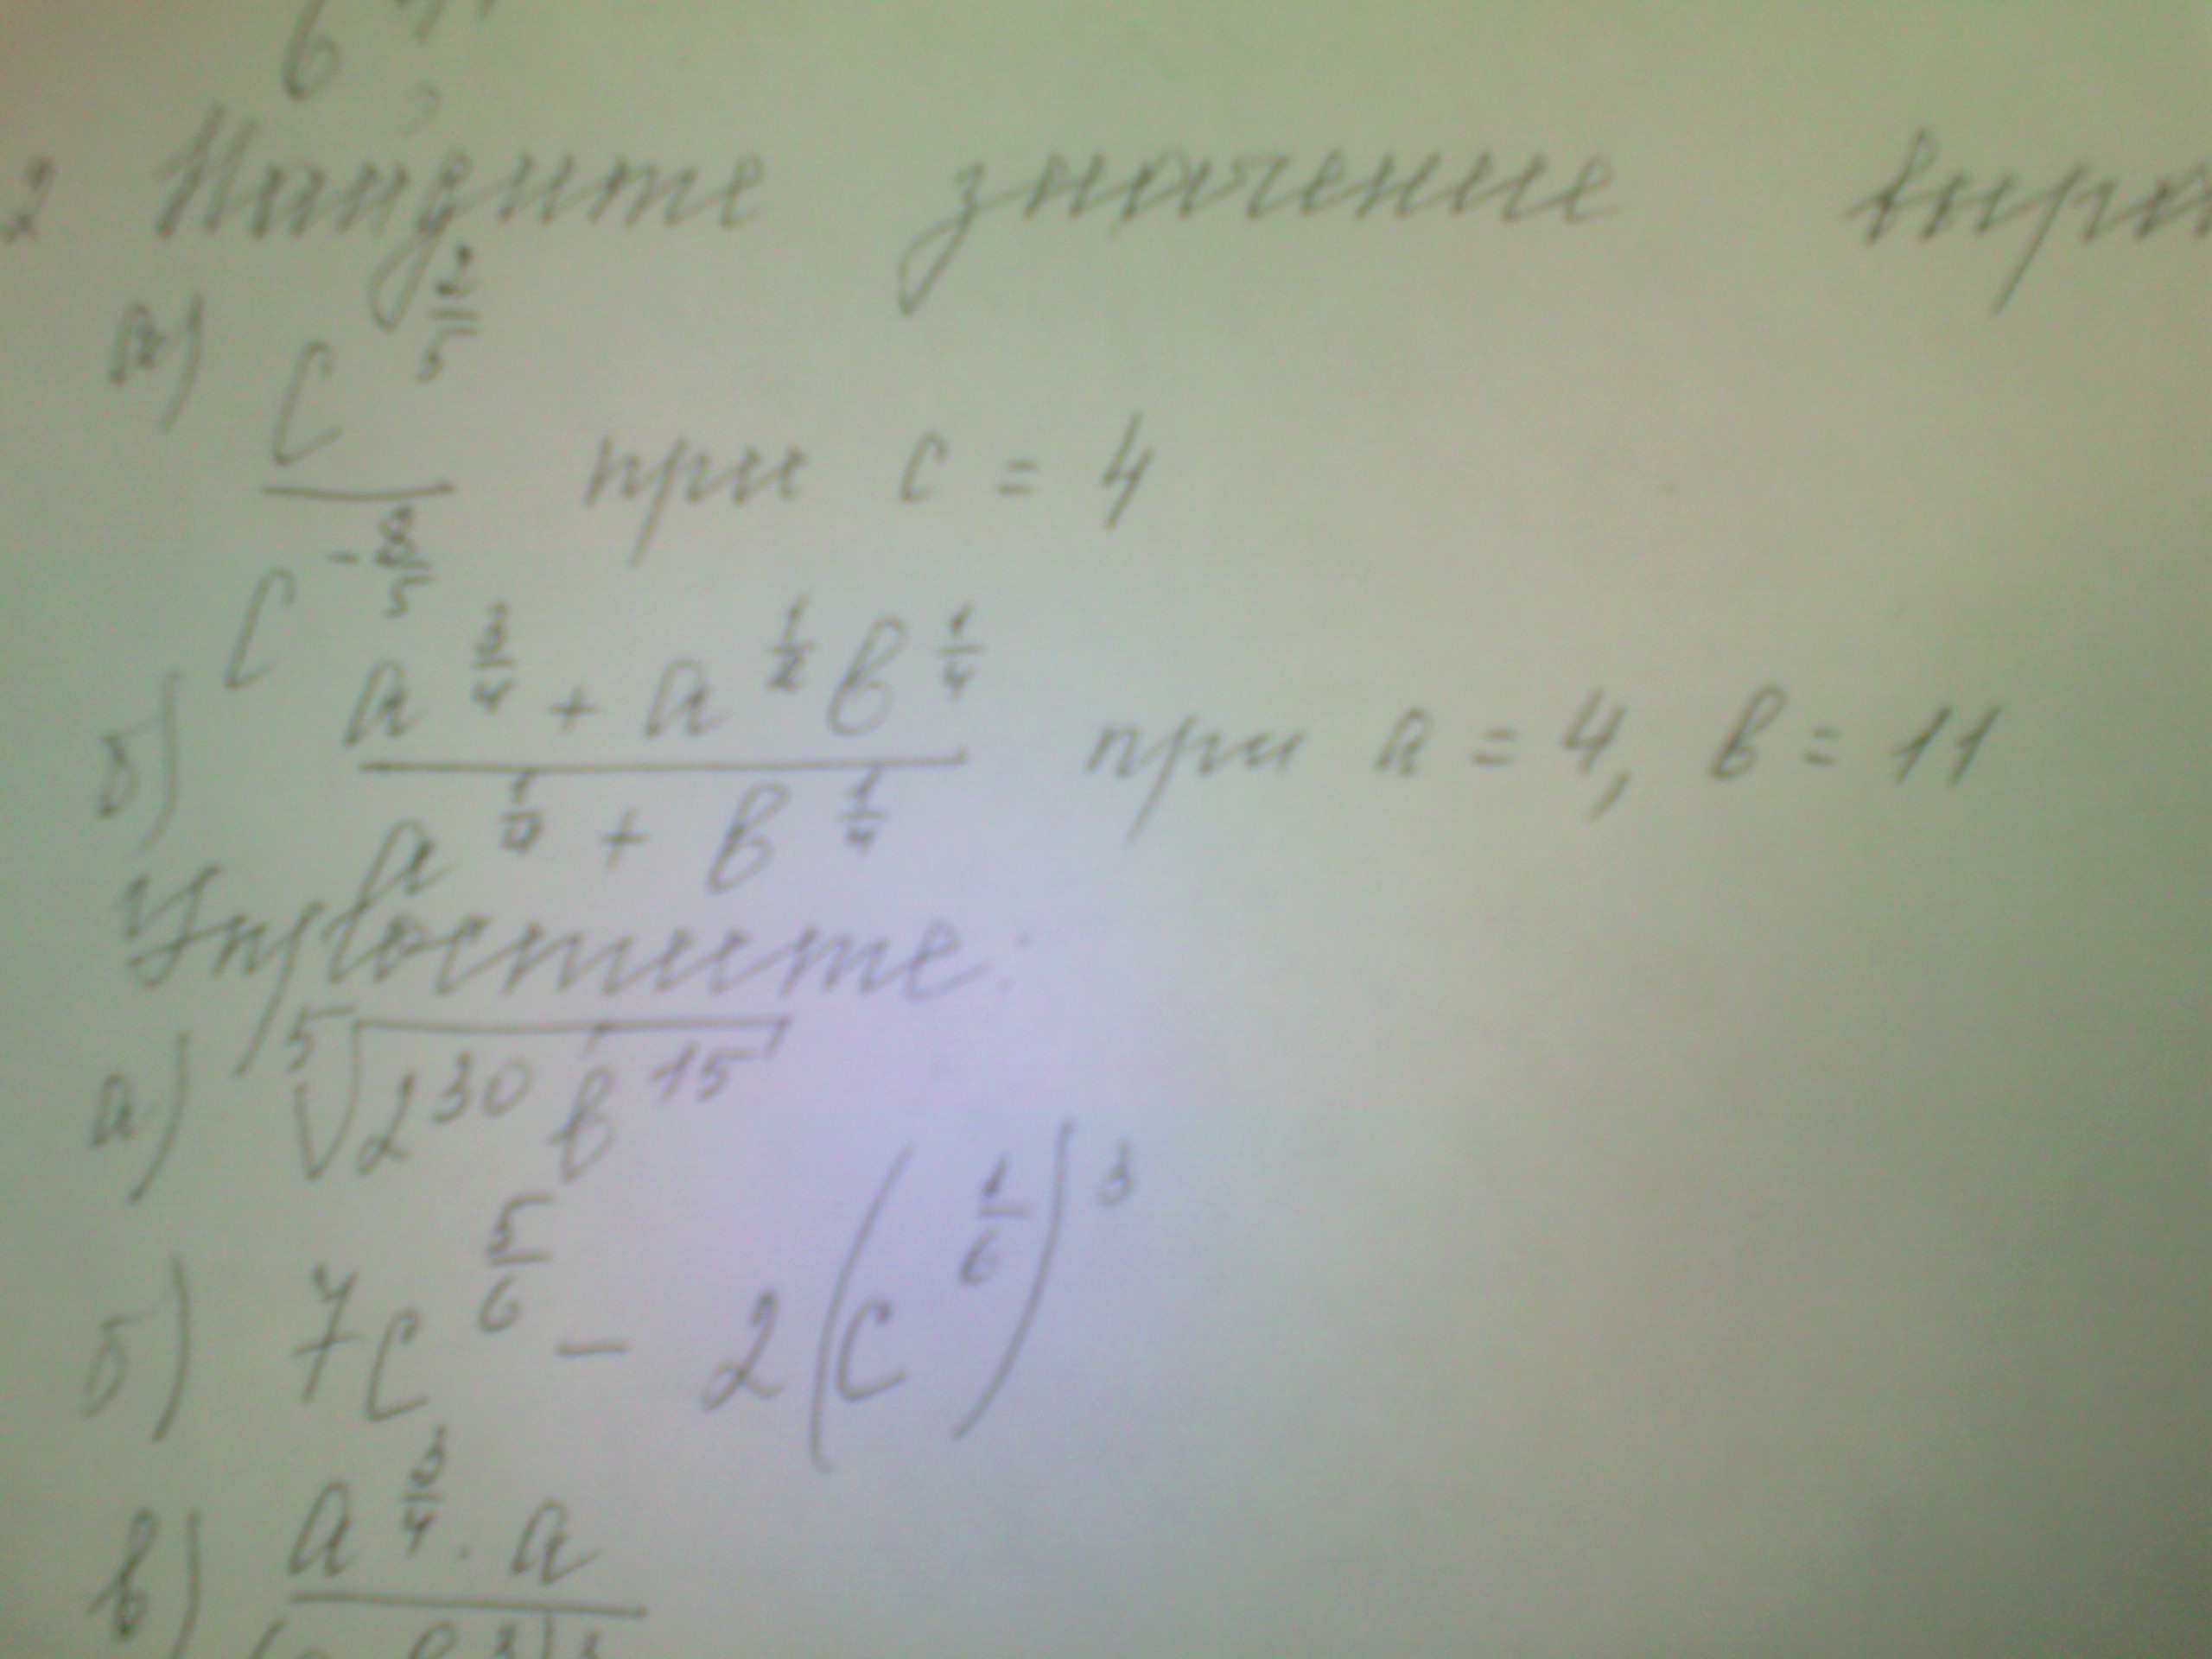 2 Найдите значение
а) c^{2/5} / c^{-8/5} при c = 4
б) (a^{3/4} + a^{1/2} b^{1/4}) / (a^{1/4} + b^{1/4}) при a = 4, b = 11
Упростите:
а) ⁵√(2^{30} b^{15})
б) 7c^{5/6} - 2(c^{1/6})^3
в) a^{3/4} · a